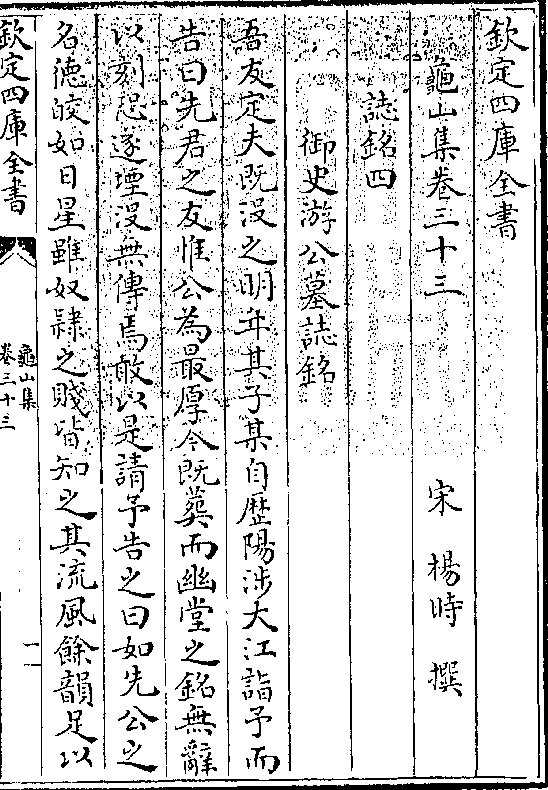 欽定四庫全書
龜山集卷三十三
宋 楊時 撰
誌銘四
御史游公墓誌銘
吾友定夫既没之明年其子某自歴陽涉大江詣予而
告曰先君之友惟公為最厚今既葬而幽堂之銘無辭
以刻恐遂堙没無傳焉敢以是請予告之曰如先公之
名徳皎如日星雖奴隷之賤皆知之其流風餘韻足以
欽定四庫全書
龜山集
卷三十三
一